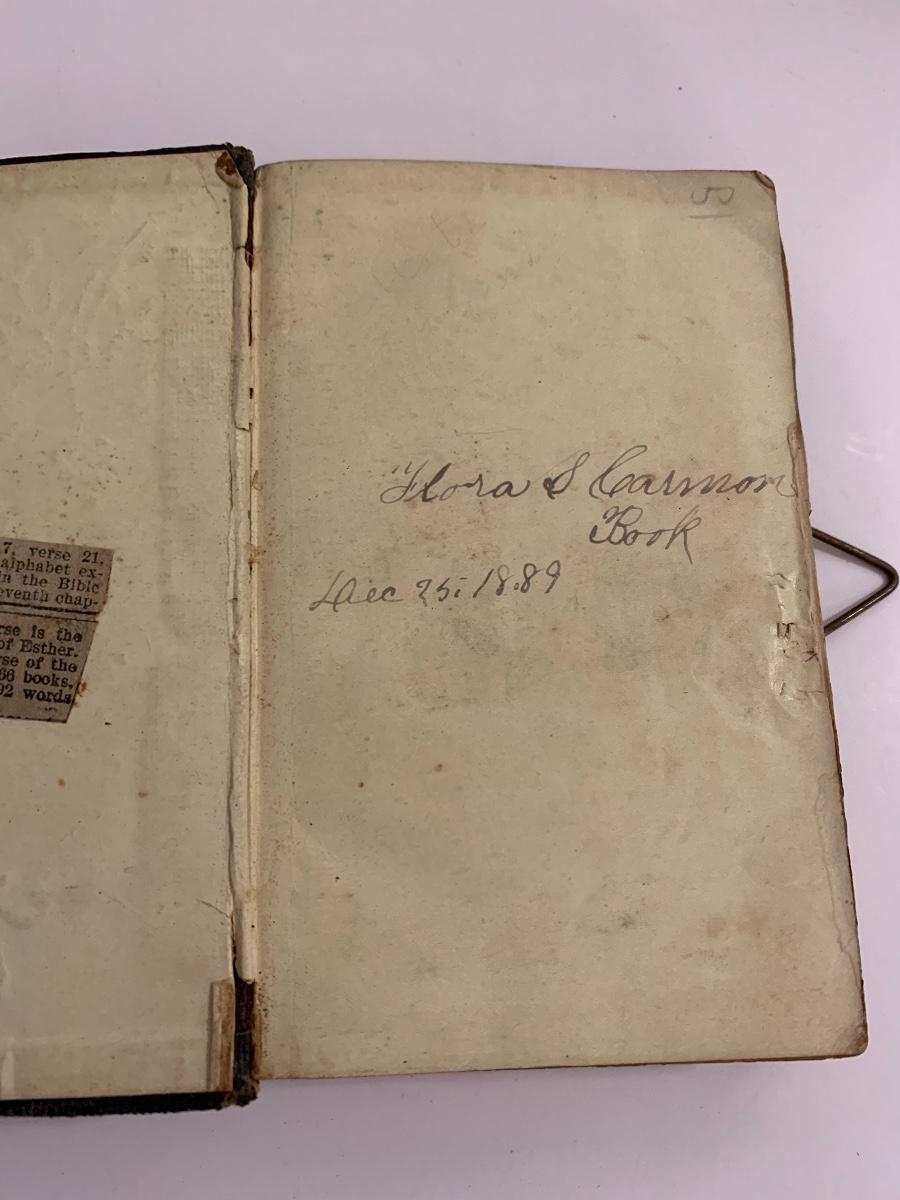 7, verse 21,
alphabet ex-
in the Bible
eventh chap-
rse is the
of Esther.
rse of the
66 books,
92 words
Flora S Carmons
Book
Dec 25, 1889